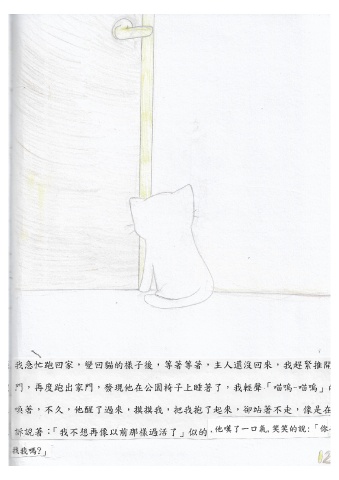 我急忙跑回家，變回貓的樣子後，等著等著，主人還沒回來，我趕緊推開
門，再度跑出家門，發現他在公園椅子上睡著了，我輕聲「喵嗚~喵嗚」的
喚著，不久，他醒了過來，摸摸我，把我抱了起來，卻站著不走，像是在
訴說著：「我不想再像以前那樣過活了」似的，他嘆了一口氣，笑笑的說：「你
我嗎？」
12